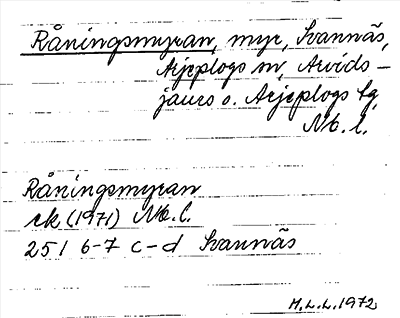 Råningsmyran, myr, Svannäs,
Arjeplogs sn, Arvids-
jaurs o. Arjeplogs tg,
Nb. l.
Råningsmyran
ek (1971) Nb. l.
25 I 6-7 c-d Svannäs
M.L.L. 1972